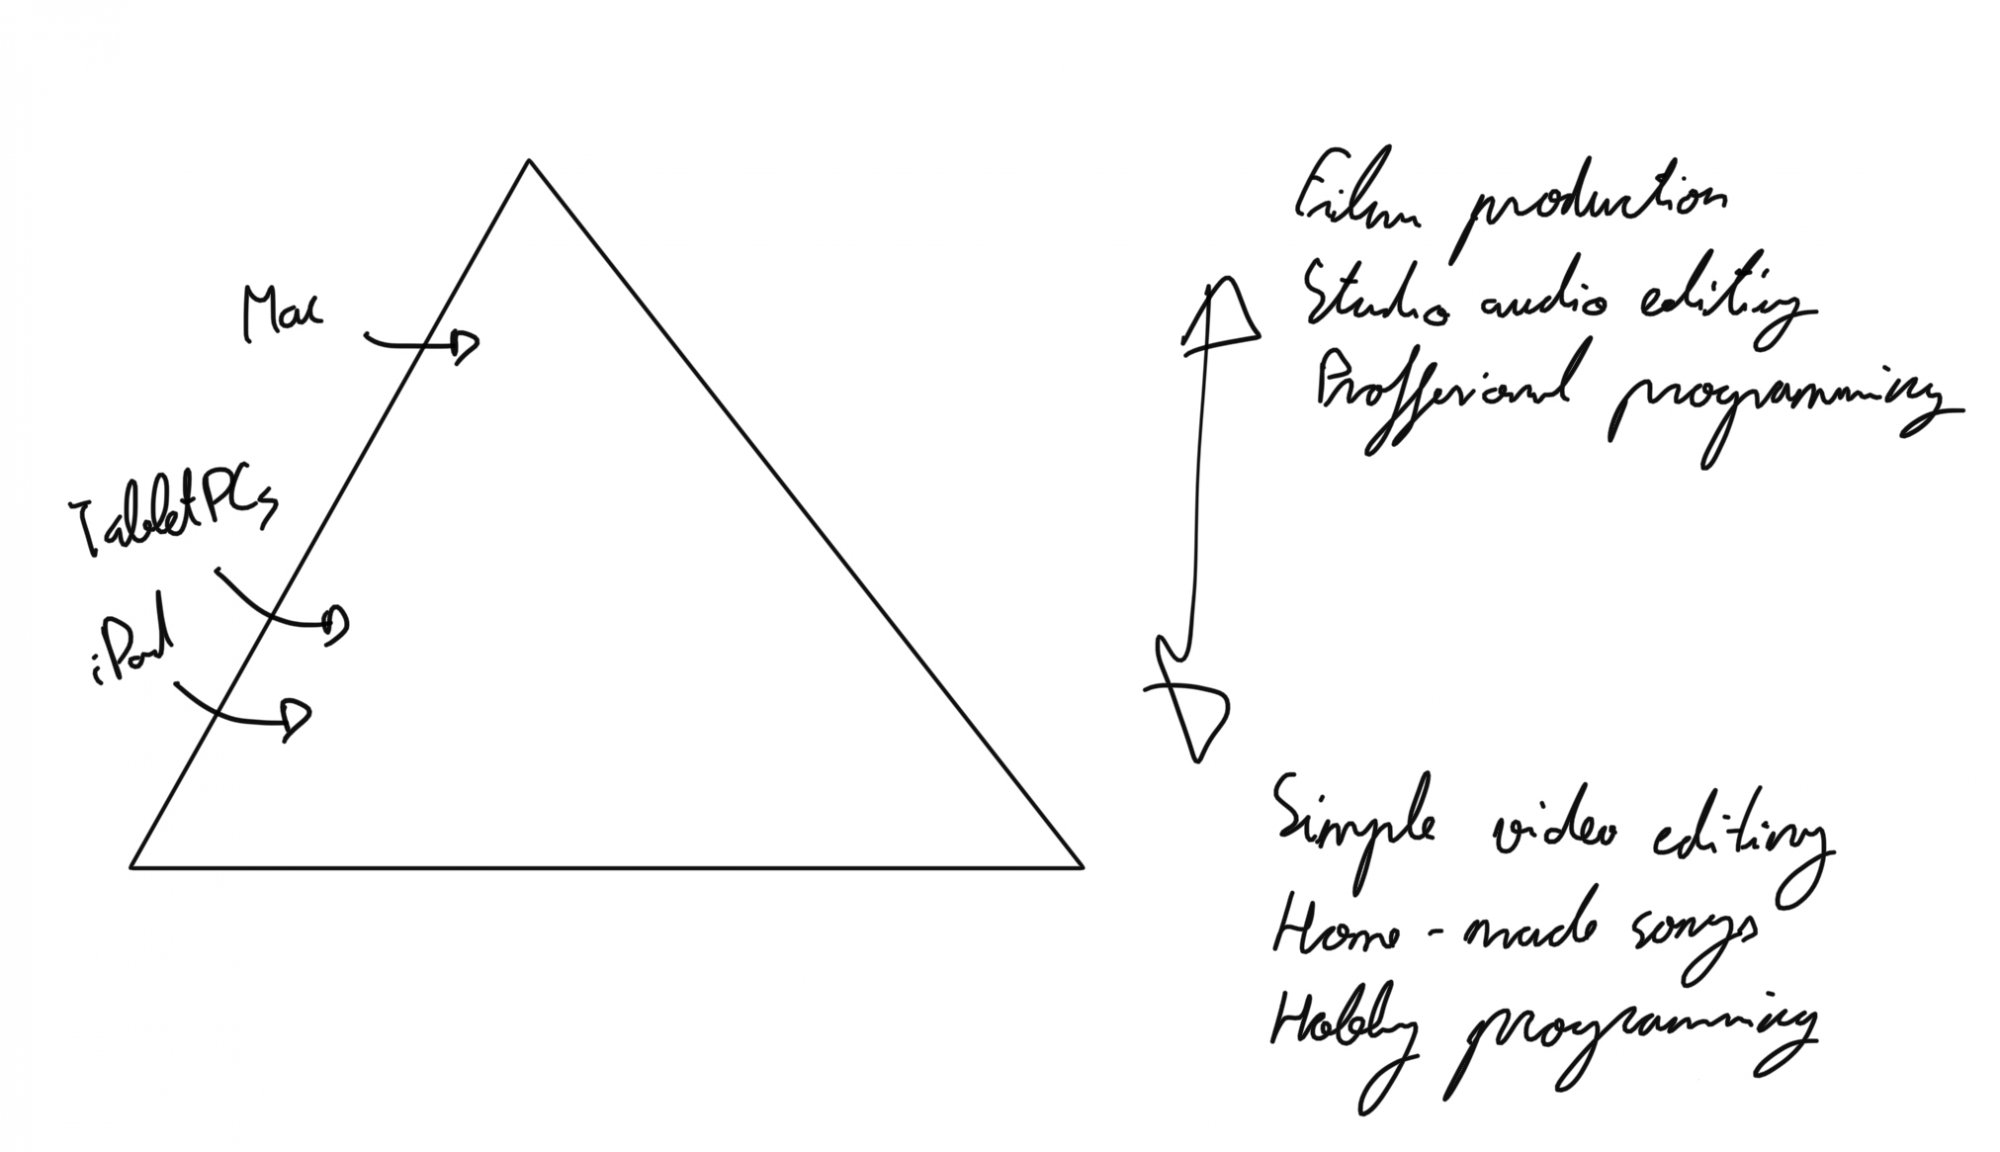 Mac
TabletPCs
iPad
Film production
Studio audio editing
Proffesional programming
Simple video editing
Home-made songs
Hobby programming